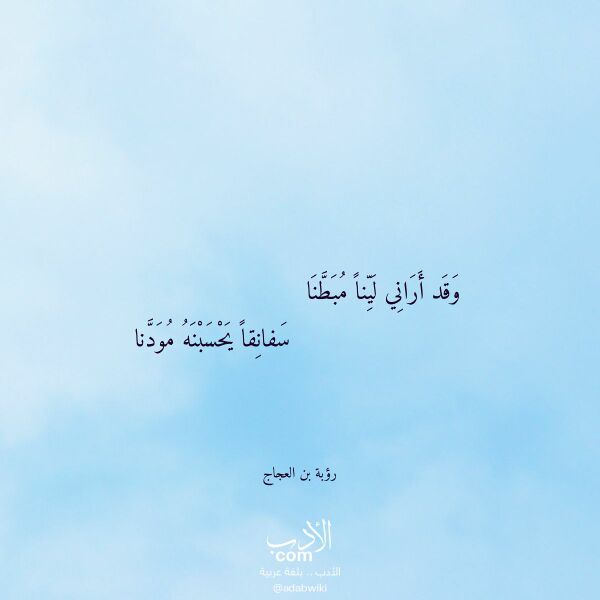 وَقَد أَرَانِي لَيِّناً مُبَطَّنَا
سَفانِقاً يَحْسَبْنَهُ مُوَدَّنا
رؤبة بن العجاج
الأدب
com
الأدب .. بلغة عربية
@adabwiki